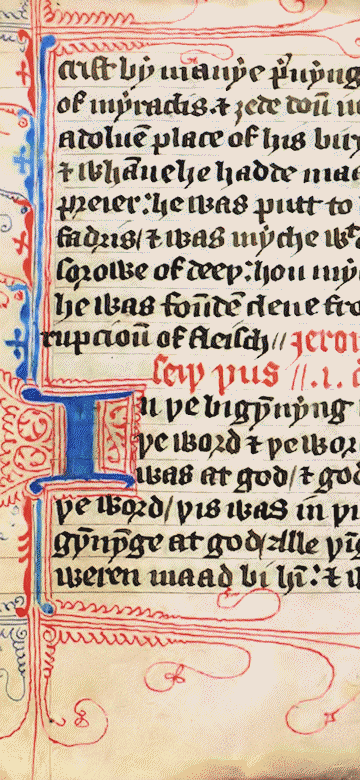 crist by manye p̃uyng
of myraclis. ⁊ ȝede doū
a doluē place of his
⁊ whāne he hadde maa
preier: he was putt to
fadris/ ⁊ was myche wͭ
sorowe of deeþ: hou my
he was foūdē clene fro
rupcioū of fleisch// Jerom
seiþ þus //.1.
In þe bigyn̄yng
þe word ⁊ þe wor
was at god/ ⁊ god
þe word/ þis was in þi
gyn̄yge at god/ Alle þī
weren maad bi hī: ⁊